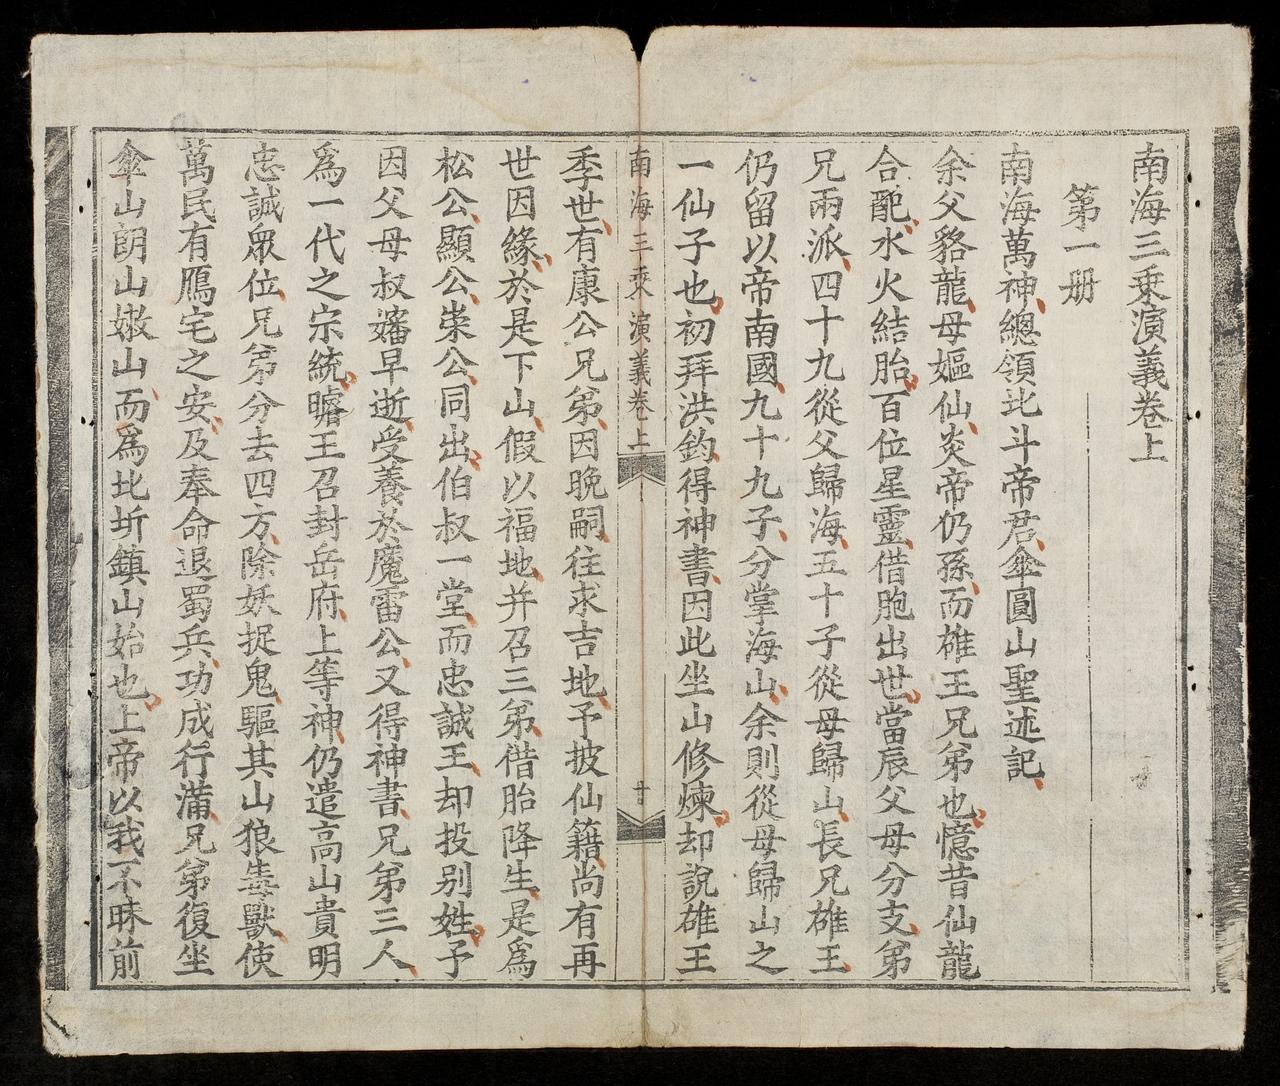 南海三乘演義卷上
第一册
南海萬神總領北斗帝君傘圓山聖述記
余父貉龍母嫗仙炎帝仍孫而雄王兄弟也憶昔仙龍
合配水火結胎百位星靈借胞出世當辰父母分支弟
兄兩派四十九從父歸海五十子從母歸山長兄雄王
仍留以帝南國九十九子分掌海山余則從母歸山之
一仙子也初拜洪鈞得神書因此坐山修煉却說雄王
南海三乘演義卷上
季世有康公兄弟因晚嗣往求吉地予披仙籍尚有再
世因緣於是下山假以福地并召三弟借胎降生是爲
松公顯公崇公同出伯叔一堂而忠誠王却投別姓予
因父母叔嬸早逝受養於魔雷公又得神書兄弟三人
爲一代之宗統𣈗王召封岳府上等神仍遣高山貴明
忠誠衆位兄弟分去四方除妖捉鬼驅其山狼毒獸使
萬民有鴈宅之安及奉命退蜀兵功成行滿兄弟復坐
傘山朗山嫩山而爲北圻鎮山始也上帝以我不昧前